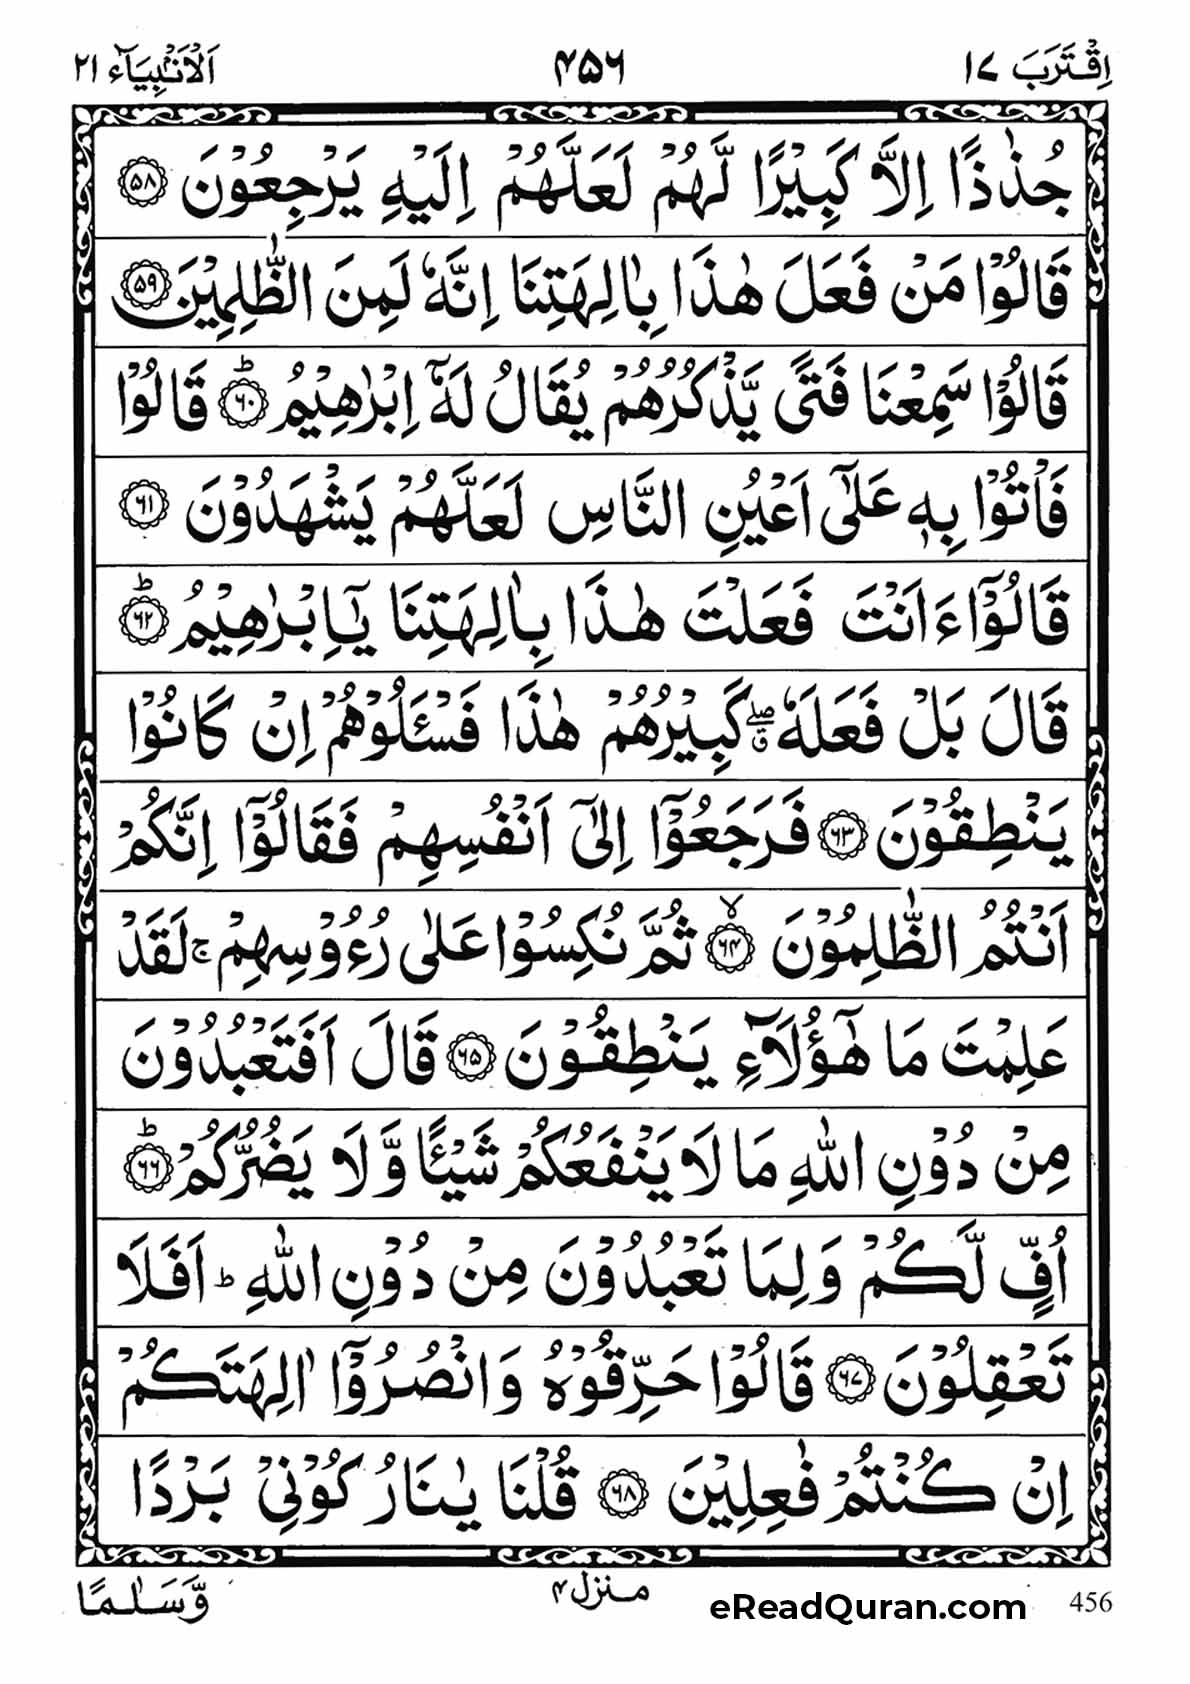 اِقْتَرَبَ ١٧
٤٥٦
اَلْاَنْۢبِيَآء ٢١
جُذٰذًا اِلَّا كَبِيْرًا لَّهُمْ لَعَلَّهُمْ اِلَيْهِ يَرْجِعُوْنَ ﴿٥٨﴾
قَالُوْا مَنْ فَعَلَ هٰذَا بِاٰلِهَتِنَا اِنَّهٗ لَمِنَ الظّٰلِمِيْنَ ﴿٥٩﴾
قَالُوْا سَمِعْنَا فَتًى يَّذْكُرُهُمْ يُقَالُ لَهٗۤ اِبْرٰهِيْمُ ؕ﴿٦٠﴾ قَالُوْا
فَاْتُوْا بِهٖ عَلٰۤى اَعْيُنِ النَّاسِ لَعَلَّهُمْ يَشْهَدُوْنَ ﴿٦١﴾
قَالُوْۤا ءَاَنْتَ فَعَلْتَ هٰذَا بِاٰلِهَتِنَا يٰۤاِبْرٰهِيْمُ ؕ﴿٦٢﴾
قَالَ بَلْ فَعَلَهٗ ۖۗ كَبِيْرُهُمْ هٰذَا فَسْـَٔلُوْهُمْ اِنْ كَانُوْا
يَنْطِقُوْنَ ﴿٦٣﴾ فَرَجَعُوْۤا اِلٰۤى اَنْفُسِهِمْ فَقَالُوْۤا اِنَّكُمْ
اَنْتُمُ الظّٰلِمُوْنَ ۙ﴿٦٤﴾ ثُمَّ نُكِسُوْا عَلٰى رُءُوْسِهِمْ ۚ لَقَدْ
عَلِمْتَ مَا هٰۤؤُلَآءِ يَنْطِقُوْنَ ﴿٦٥﴾ قَالَ اَفَتَعْبُدُوْنَ
مِنْ دُوْنِ اللّٰهِ مَا لَا يَنْفَعُكُمْ شَيْـًٔا وَّلَا يَضُرُّكُمْ ؕ﴿٦٦﴾
اُفٍّ لَّكُمْ وَلِمَا تَعْبُدُوْنَ مِنْ دُوْنِ اللّٰهِ ؕ اَفَلَا
تَعْقِلُوْنَ ﴿٦٧﴾ قَالُوْا حَرِّقُوْهُ وَانْصُرُوْۤا اٰلِهَتَكُمْ
اِنْ كُنْتُمْ فٰعِلِيْنَ ﴿٦٨﴾ قُلْنَا يٰنَارُ كُوْنِيْ بَرْدًا
وَّسَلٰمًا
منزل ٤
eReadQuran.com
456